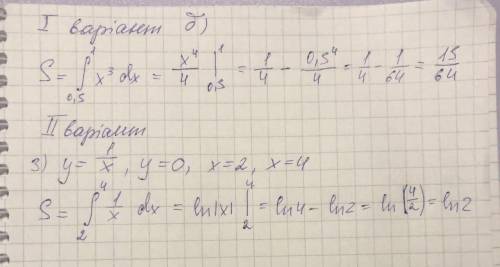 I варіант б)
S = ∫_{0,5}^{1} x³ dx = x⁴/4 |_{0,5}^{1} = 1/4 − 0,5⁴/4 = 1/4 − 1/64 = 15/64
II варіант
3) y = 1/x, y=0, x=2, x=4
S = ∫_{2}^{4} 1/x dx = ln|x| |_{2}^{4} = ln4 − ln2 = ln(4/2) = ln2